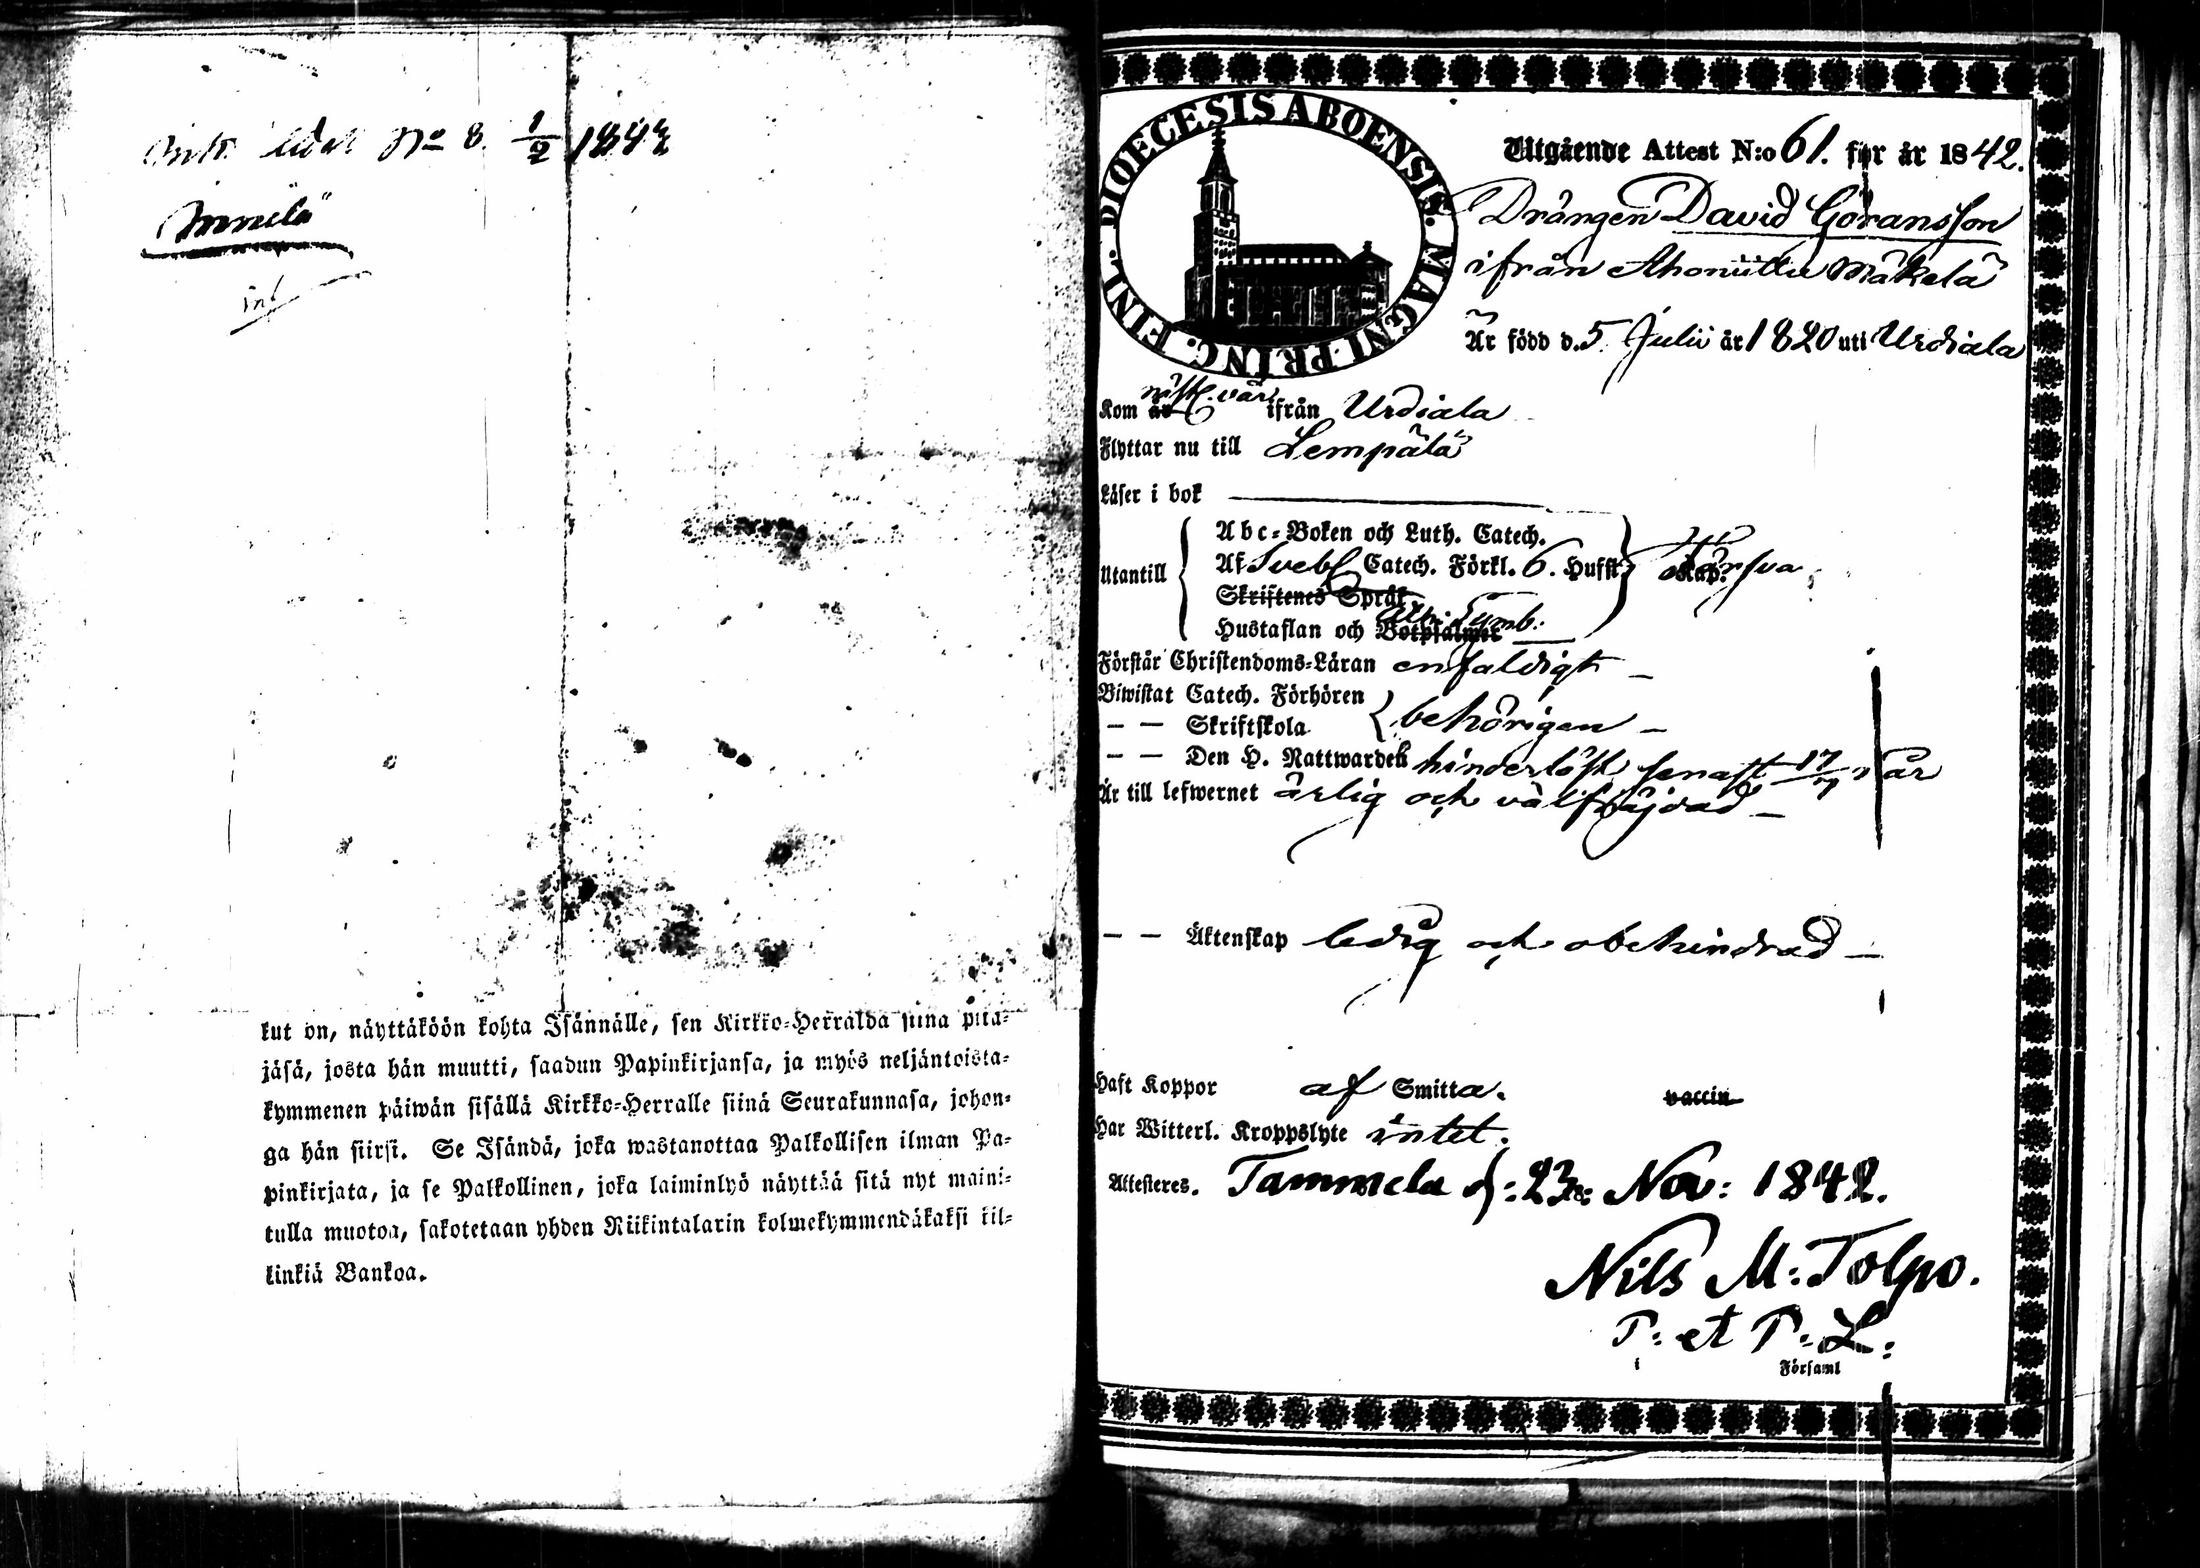 No 8. 1/2 1842
int
kut on, näyttäköön kohta Isännälle, sen Kirkko-Herralda siina pitä-
jäsä, josta hän muutti, saadun Papinkirjansa, ja myös neljäntoista-
kymmenen päiwän sisällä Kirkko-Herralle siinä Seurakunnasa, johon-
ga hän siirsi. Se Isändä, joka wastanottaa Palkollisen ilman Pa-
pinkirjata, ja se Palkollinen, joka laiminlyö näyttää sitä nyt maini-
tulla muotoa, sakotetaan yhden Riikintalarin kolmekymmendäkaksi kil-
linkiä Bankoa.
DIOECESIS ABOENSIS. MAGNI PRINC. FINL.
Utgående Attest N:o 61. för år 1842.
Drängen David Göransson
ifrån Ahoniittu Mäkelä
Är född d. 5 Julii år 1820 uti Urdiala
Kom år nästl. vår ifrån Urdiala
Flyttar nu till Lempälä
Läser i bok
Utantill
Abc-Boken och Luth. Catech.
Af Svebl Catech. Förkl. 6. Hufst
Skriftenes Språk
Hustaflan och Botpsalmer Symb:
Förstår Christendoms-Läran enfaldigt
Biwistat Catech. Förhören
— — Skriftskola behörigen
— — Den H. Nattwarden hinderlöst senast 17/7 år
Är till lefwernet ärlig och välfräjdad
— — Äktenskap ledig och obehindrad
Haft Koppor af Smitta. vaccin
Har Witterl. Kroppslyte intet.
Attesteres. Tammela d: 23 Nov: 1842.
Nils M: Tolpo.
P: et P: L:
i Församl